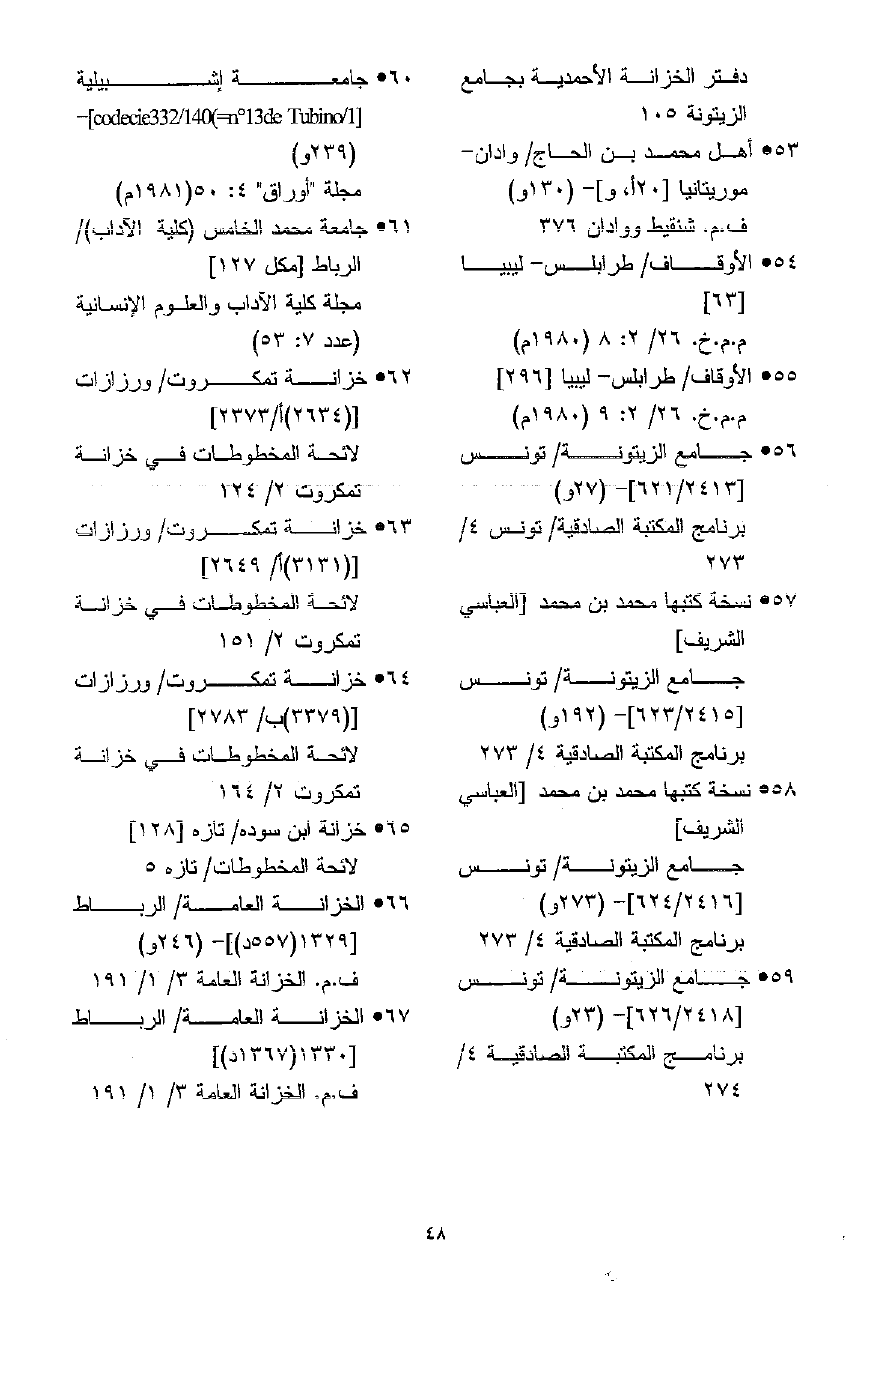 دفتر الخزانة الأحمدية بجامع
الزيتونة ١٠٥
٥٣• أهل محمد بن الحاج/ وادان-
موريتانيا [٢٠أ، و]- (١٣٠و)
ف.م. شنقيط ووادان ٣٧٦
٥٤• الأوقاف/ طرابلس- ليبيا
[٦٣]
م.م.خ. ٢٦/ ٢: ٨ (١٩٨٠م)
٥٥• الأوقاف/ طرابلس- ليبيا [٢٩٦]
م.م.خ. ٢٦/ ٢: ٩ (١٩٨٠م)
٥٦• جامع الزيتونة/ تونس
[٦٢١/٢٤١٣]- (٢٧و)
برنامج المكتبة الصادقية/ تونس ٤/
٢٧٣
٥٧• نسخة كتبها محمد بن محمد [العباسي
الشريف]
جامع الزيتونة/ تونس
[٦٢٣/٢٤١٥]- (١٩٢و)
برنامج المكتبة الصادقية ٤/ ٢٧٣
٥٨• نسخة كتبها محمد بن محمد [العباسي
الشريف]
جامع الزيتونة/ تونس
[٦٢٤/٢٤١٦]- (٢٧٣و)
برنامج المكتبة الصادقية ٤/ ٢٧٣
٥٩• جامع الزيتونة/ تونس
[٦٢٦/٢٤١٨]- (٢٣و)
برنامج المكتبة الصادقية ٤/
٢٧٤
٦٠• جامعة إشبيلية
[codecie332/140(=n°13de Tubino/1]-
(٢٣٩و)
مجلة "أوراق" ٤: ٥٠(١٩٨١م)
٦١• جامعة محمد الخامس (كلية الآداب)/
الرباط [مكل ١٢٧]
مجلة كلية الآداب والعلوم الإنسانية
(عدد ٧: ٥٣)
٦٢• خزانة تمكروت/ ورزازات
[(٢٦٣٤)أ/٢٣٧٣]
لائحة المخطوطات في خزانة
تمكروت ٢/ ١٢٤
٦٣• خزانة تمكروت/ ورزازات
[(٣١٣١)أ/ ٢٦٤٩]
لائحة المخطوطات في خزانة
تمكروت ٢/ ١٥١
٦٤• خزانة تمكروت/ ورزازات
[(٣٣٧٩)ب/ ٢٧٨٣]
لائحة المخطوطات في خزانة
تمكروت ٢/ ١٦٤
٦٥• خزانة ابن سوده/ تازه [١٢٨]
لائحة المخطوطات/ تازه ٥
٦٦• الخزانة العامة/ الرباط
[١٣٢٩(٥٥٧د)]- (٢٤٦و)
ف.م. الخزانة العامة ٣/ ١/ ١٩١
٦٧• الخزانة العامة/ الرباط
[١٣٣٠(١٣٦٧د)]
ف.م. الخزانة العامة ٣/ ١/ ١٩١
٤٨